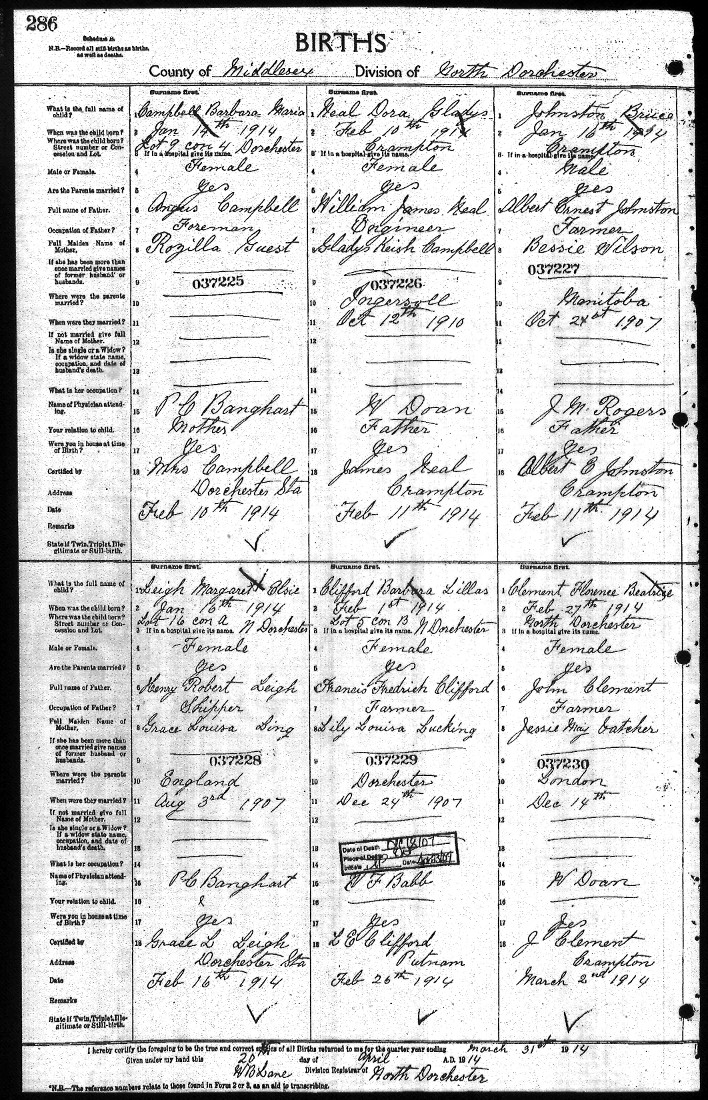 286
Schedule A.
N.B.—Record all still births as births, as well as deaths.
BIRTHS
County of Middlesex Division of North Dorchester
Surname first. Surname first. Surname first.
What is the full name of child? 1 Campbell Barbara Maria 1 Neal Dora Gladys 1 Johnston Bruce
When was the child born? 2 Jan 14th 1914 2 Feb 10th 1914 2 Jan 16th 1914
Where was the child born? Street number or Concession and Lot. Lot 9 con 4 Dorchester Crampton Crampton
3 If in a hospital give its name. 3 If in a hospital give its name. 3 If in a hospital give its name.
Male or Female. 4 Female 4 Female 4 Male
Are the Parents married? 5 Yes 5 Yes 5 Yes
Full name of Father. 6 Angus Campbell 6 William James Neal 6 Albert Ernest Johnston
Occupation of Father? 7 Foreman 7 Engineer 7 Farmer
Full Maiden Name of Mother. 8 Rozilla Guest 8 Gladys Keish Campbell 8 Bessie Wilson
If she has been more than once married give names of former husband or husbands. 9 037225 9 037226 9 037227
Where were the parents married? 10 10 Ingersoll 10 Manitoba
When were they married? 11 11 Oct 12th 1910 11 Oct 1907
If not married give full Name of Mother. 12 12 12
Is she single or a Widow? If a widow state name, occupation, and date of husband's death. 13 13 13
What is her occupation? 14 14 14
Name of Physician attending. 15 P C Banghart 15 W Doan 15 J M Rogers
Your relation to child. 16 Mother 16 Father 16 Father
Were you in house at time of Birth? 17 Yes 17 Yes 17 Yes
Certified by 18 Mrs Campbell 18 James Neal 18 Albert E Johnston
Address Dorchester Sta Crampton Crampton
Date Feb 10th 1914 Feb 11th 1914 Feb 11th 1914
Remarks
State if Twin, Triplet, Illegitimate or Still-birth. ✓ ✓ ✓
Surname first. Surname first. Surname first.
What is the full name of child? 1 Leigh Margaret Elsie 1 Clifford Barbara Lillas 1 Clement Florence Beatrice
When was the child born? 2 Jan 16th 1914 2 Feb 1st 1914 2 Feb 27th 1914
Where was the child born? Street number or Concession and Lot. Lot 16 con A N Dorchester Lot 5 con B N Dorchester North Dorchester
3 If in a hospital give its name. 3 If in a hospital give its name. 3 If in a hospital give its name.
Male or Female. 4 Female 4 Female 4 Female
Are the Parents married? 5 Yes 5 Yes 5 Yes
Full name of Father. 6 Henry Robert Leigh 6 Francis Fredrich Clifford 6 John Clement
Occupation of Father? 7 Shipper 7 Farmer 7 Farmer
Full Maiden Name of Mother. 8 Grace Louisa Ling 8 Lily Louisa Lucking 8 Jessie May Eatcher
If she has been more than once married give names of former husband or husbands. 9 037228 9 037229 9 037230
Where were the parents married? 10 England 10 Dorchester 10 London
When were they married? 11 Aug 3rd 1907 11 Dec 24th 1907 11 Dec 14th
If not married give full Name of Mother. 12 12 12
Is she single or a Widow? If a widow state name, occupation, and date of husband's death. 13 13 13
Date of Death
Place of Death
Initials Date
What is her occupation? 14 14 14
Name of Physician attending. 15 P C Banghart 15 W F Babb 15 W Doan
Your relation to child. 16 16 16
Were you in house at time of Birth? 17 Yes 17 Yes 17 Yes
Certified by 18 Grace L Leigh 18 L E Clifford 18 J Clement
Address Dorchester Sta Putnam Crampton
Date Feb 16th 1914 Feb 26th 1914 March 2nd 1914
Remarks
State if Twin, Triplet, Illegitimate or Still-birth. ✓ ✓ ✓
I hereby certify the foregoing to be the true and correct copies of all Births returned to me for the quarter year ending March 31st 1914
Given under my hand this 20th day of April A.D. 1914
W B Lane Division Registrar of North Dorchester
*N.B.—The reference numbers relate to those found in Form 2 or 3, as an aid to transcribing.